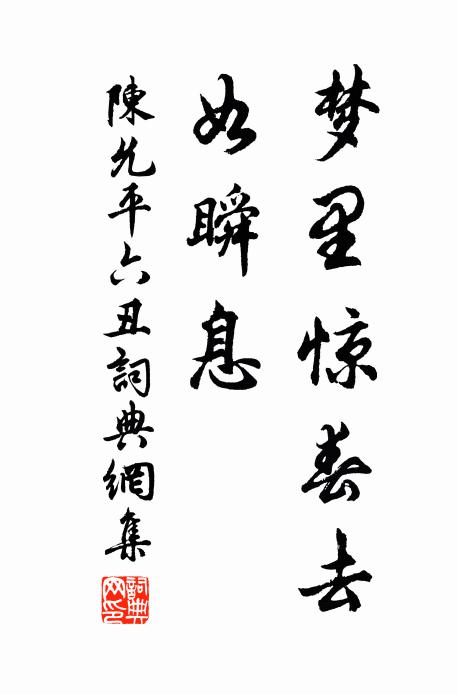 梦里惊春去
如瞬息
陳允平六丑詞典網集
詞典網印